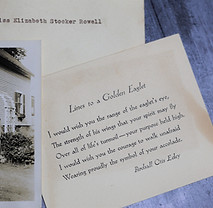 iss Elizabeth Stocker Rowell
Lines to a Golden Eaglet
I would wish you the range of the eagle's eye,
The strength of his wings that your spirit may fly
Over all of life's turmoil—your purpose held high.
I would wish you the courage to walk unafraid
Wearing proudly the symbol of your accolade.
Birdsall Otis Edey